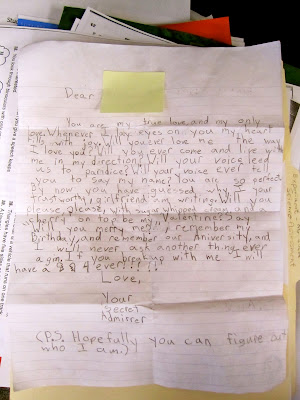 Dear
You are my true love and my only
love. Whenever I lay eyes on you my heart
fills with joy. Will you ever love me the way
I love you? Will you ever come and love
me in my direction? Will your voice lead
us to paridice? Will your voice ever tell
you to say my name? You are so perfect
by now you have guessed why is your
trustworthy girlfriend am writing. Will you
please, please, with sugar, whiped
cherry on top be my Valentine? Day
Will you merry me? remember my
Birthday, and remember our Aniversity, and
I will never ask another thing ever
agin. If you breakup with me I will
have a 4 ever!!!!!
Love,
Your
Secret
Admirer
(P.S. Hopefully you can figure out
who I am.)